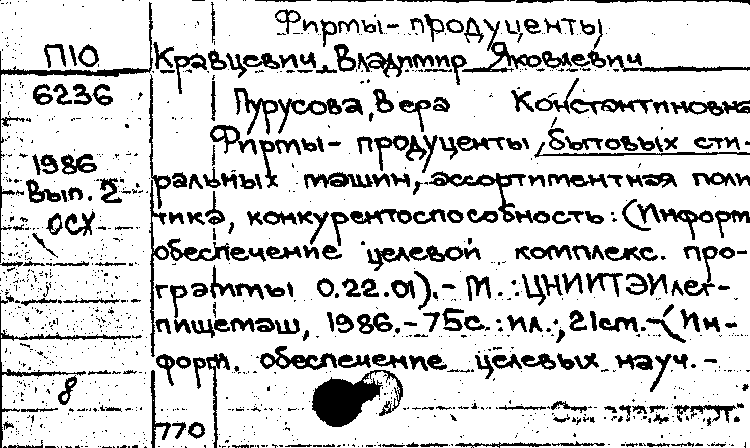 Фирмы-продуценты
П10
Кравцевич, Владимир Яковлевич
6236
Пурусова, Вера Константиновна
Фирмы-продуценты бытовых сти-
1986
Вып. 2
ральных машин, ассортиментная поли
ОСХ
тика, конкурентоспособность: (Информ
обеспечение целевой комплекс. про-
граммы 0.22.01).- М.: ЦНИИТЭИлег-
пищемаш, 1986.- 75с.: ил.; 21см.-(Ин-
форм. обеспечение целевых науч.-
8
См. след. карт.
770